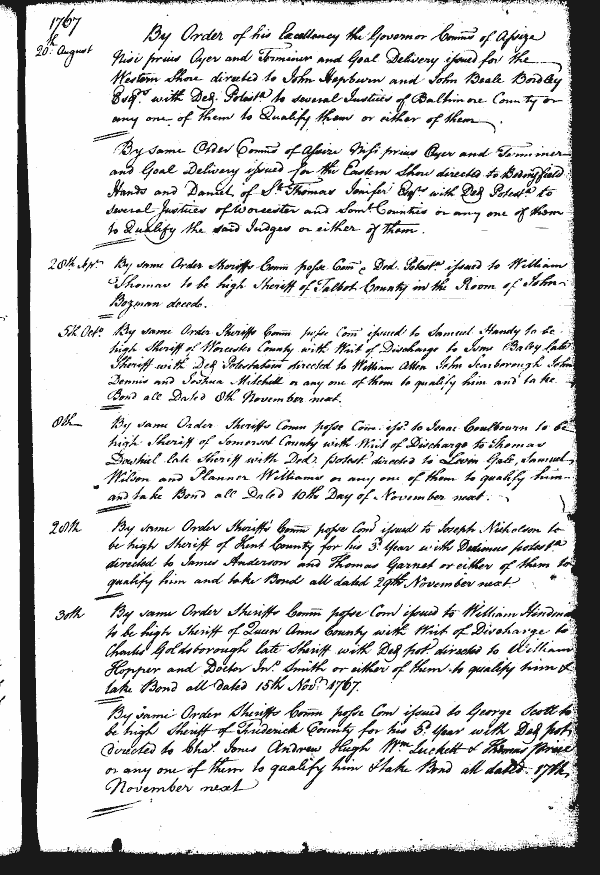 1767
20th August By Order of his Excellency the Governor Comns of Assize
Nisi prius Oyer and Terminer and Goal Delivery issued for the
Western Shore directed to John Hepburn and John Beale Bordley
Esqrs with Ded. Potesta to several Justices of Baltimore County or
any one of them to Qualify them or either of them
By same Order Comns of Assize Nisi prius Oyer and Terminer
and Goal Delivery issued for the Eastern Shore directed to Bedingfield
Hands and Daniel of St Thomas Jenifer Esqrs with Ded Potesta to
several Justices of Worcester and Somt Counties or any one of them
to Qualify the said Judges or either of them.
28th By same Order Sheriffs Comn posse Com & Ded. Potesta issued to William
Thomas to be high Sheriff of Talbot County in the Room of John
Bozman decede.
5th Octo. By same Order Sheriffs Comn posse Com issued to Samuel Handy to be
high Sheriff of Worcester County with Writ of Discharge to late
Sheriff with Ded Potestatem directed to William Allen John Scarborough John
Dennis and Joshua Mitchell or any one of them to qualify him and take
Bond all Dated 8th November next.
8th By same Order Sheriffs Comn posse Com. issd. to Isaac Coulbourn to be
high Sheriff of Somerset County with Writ of Discharge to Thomas
Dashiel late Sheriff with Ded. potest. directed to Levin Gale, Samuel
Wilson and Planner Williams or any one of them to qualify him
and take Bond all Dated 10th Day of November next
28th By same Order Sheriffs Comn posse Com issued to Joseph Nicholson to
be high Sheriff of Kent County for his 3d Year with Dedimus potesta
directed to James Anderson and Thomas Garnet or either of them to
qualify him and take Bond all dated 29th November next
30th By same Order Sheriffs Comn posse Com issued to William Hindman
to be high Sheriff of Queen Anns County with Writ of Discharge to
Charles Goldsborough late Sheriff with Ded pot. directed to William
Hopper and Doctor Jno. Smith or either of them to qualify him &
take Bond all dated 15th Novr. 1767.
By same Order Sheriffs Comn posse Com issued to George Scott to
be high Sheriff of Frederick County for his 3d Year with Ded pot.
directed to Chas. Jones Andrew Hugh Wm Luckett & Thomas Price
or any one of them to qualify him & take Bond all dated 17th
November next